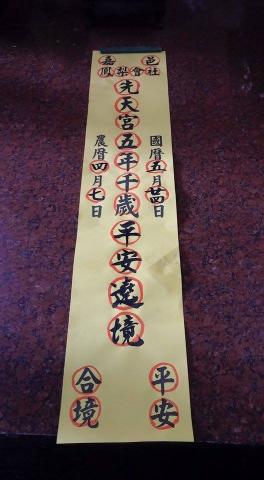 嘉邑
鳳梨會社
先天宮五年千歲平安遶境
國曆五月廿四日
農曆四月七日
合境
平安